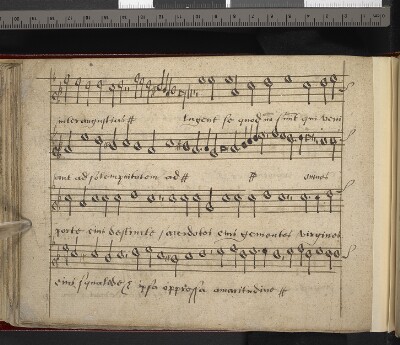 inter angustias
lugent eo quod non sunt qui veni
ant ad solempnitatem ad
omnes
porte eius destructe sacerdotes eius gementes virgines
eius squalede et ipsa oppressa amaritudine